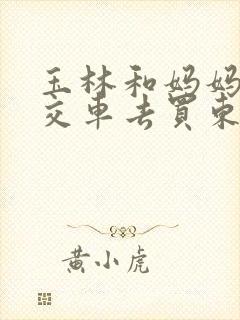 玉林和妈妈
交车去買東
黄小虎